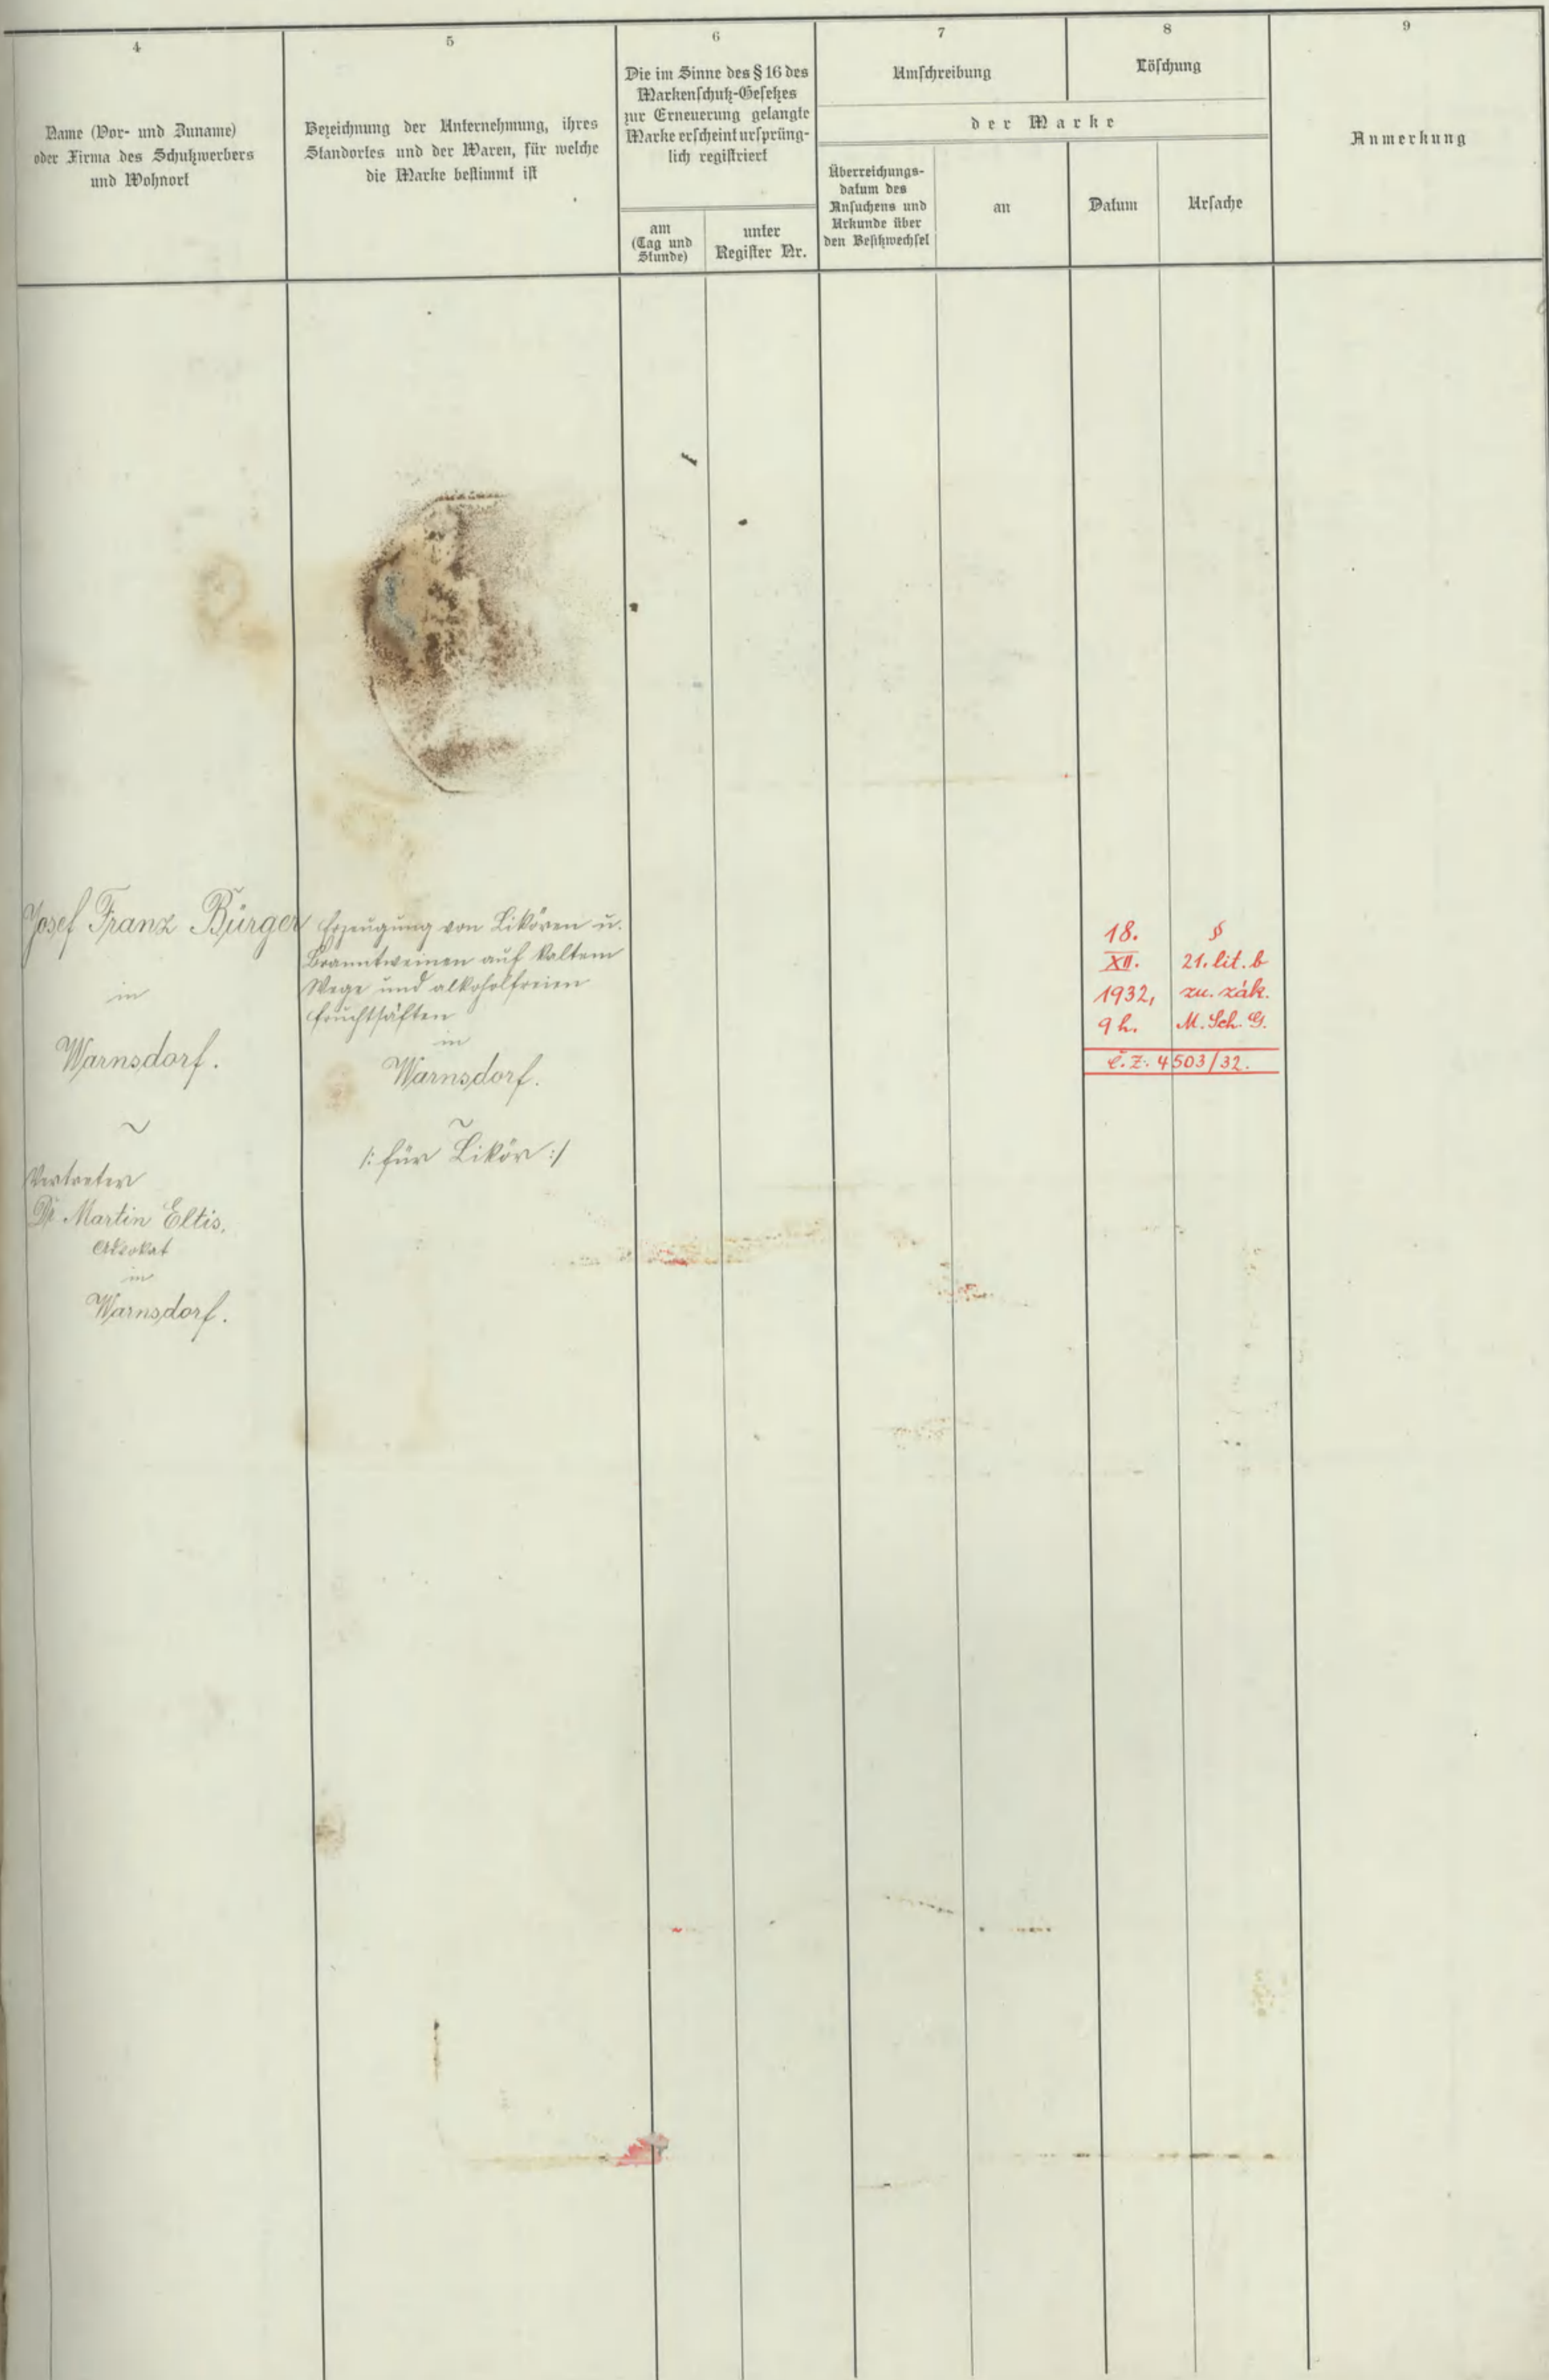 4
Name (Vor- und Zuname)
oder Firma des Schutzwerbers
und Wohnort
5
Bezeichnung der Unternehmung, ihres
Standortes und der Waren, für welche
die Marke bestimmt ist
6
Die im Sinne des § 16 des
Markenschutz-Gesetzes
zur Erneuerung gelangte
Marke erscheint ursprüng-
lich registriert
am
(Tag und
Stunde)
unter
Register Nr.
7
Umschreibung
8
Löschung
der Marke
Überreichungs-
datum des
Ansuchens und
Urkunde über
den Besitzwechsel
an
Datum
Ursache
9
Anmerkung
Josef Franz Bürger
in
Warnsdorf.
~
Vertreter
Dr Martin Eltis.
Advokat
in
Warnsdorf.
Erzeugung von Likören u.
Branntweinen auf kaltem
Wege und alkoholfreien
Fruchtsäften
in
Warnsdorf.
~
/: für Likör :/
18.
XII.
1932,
9 h.
§
21. lit. b
zn. zák.
M. Sch. G.
č. z. 4503/32.